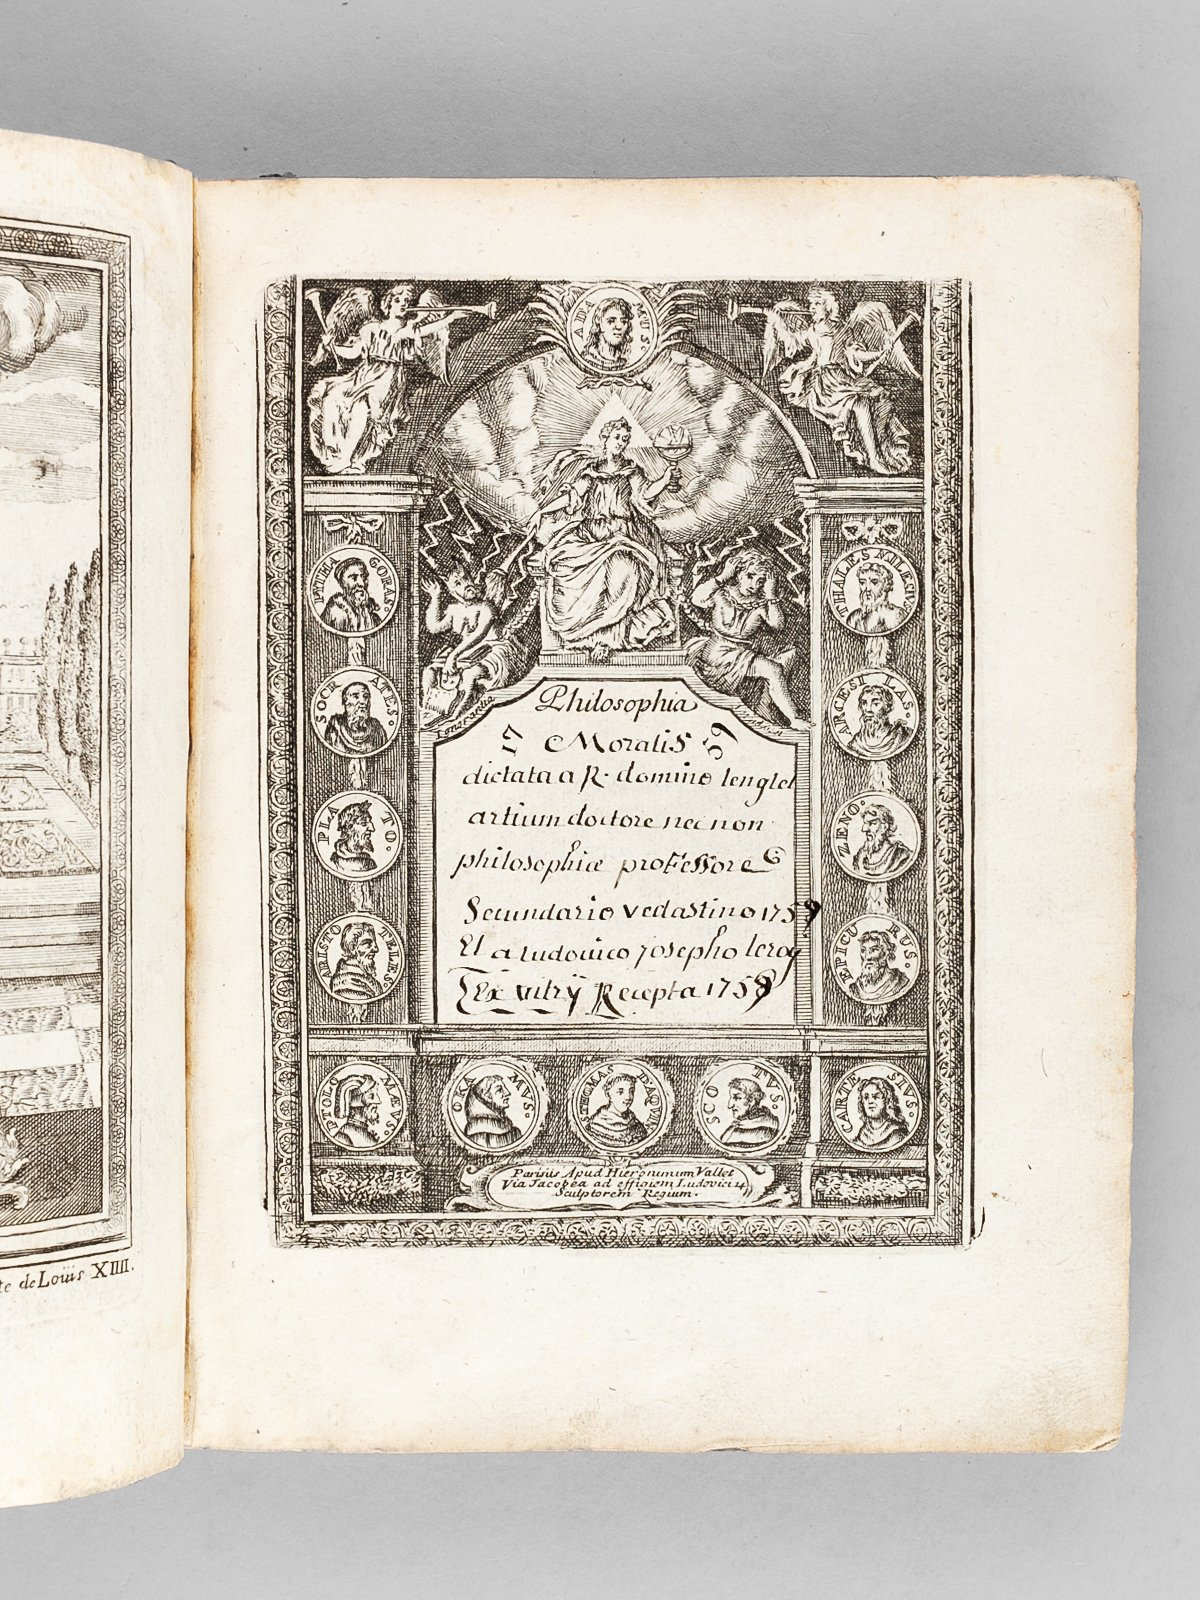 PITHA GORAS.
SOCR ATES.
PLA TO.
ARISTO TELES.
THALÆS MILÆSIVS
ARCESI LAS.
ZENO.
EPICU RUS.
Philosophia
17 Moralis 59
dictata a R. domino lenglet
artium doctore nec non
philosophiæ professore
Secundario vedastino 1759
Et a ludovico josepho leroy
Ex vitrÿ Recepta 1759
PTOLO MÆVS.
OKA MVS.
S. THOMAS DAQVIN
SCO TVS.
CARTE SIVS.
Parisiis Apud Hieronimum Vallet
Via Jacobea ad effigiem Ludovici 14
Sculptorem Regium.
te de Loüis XIIII.